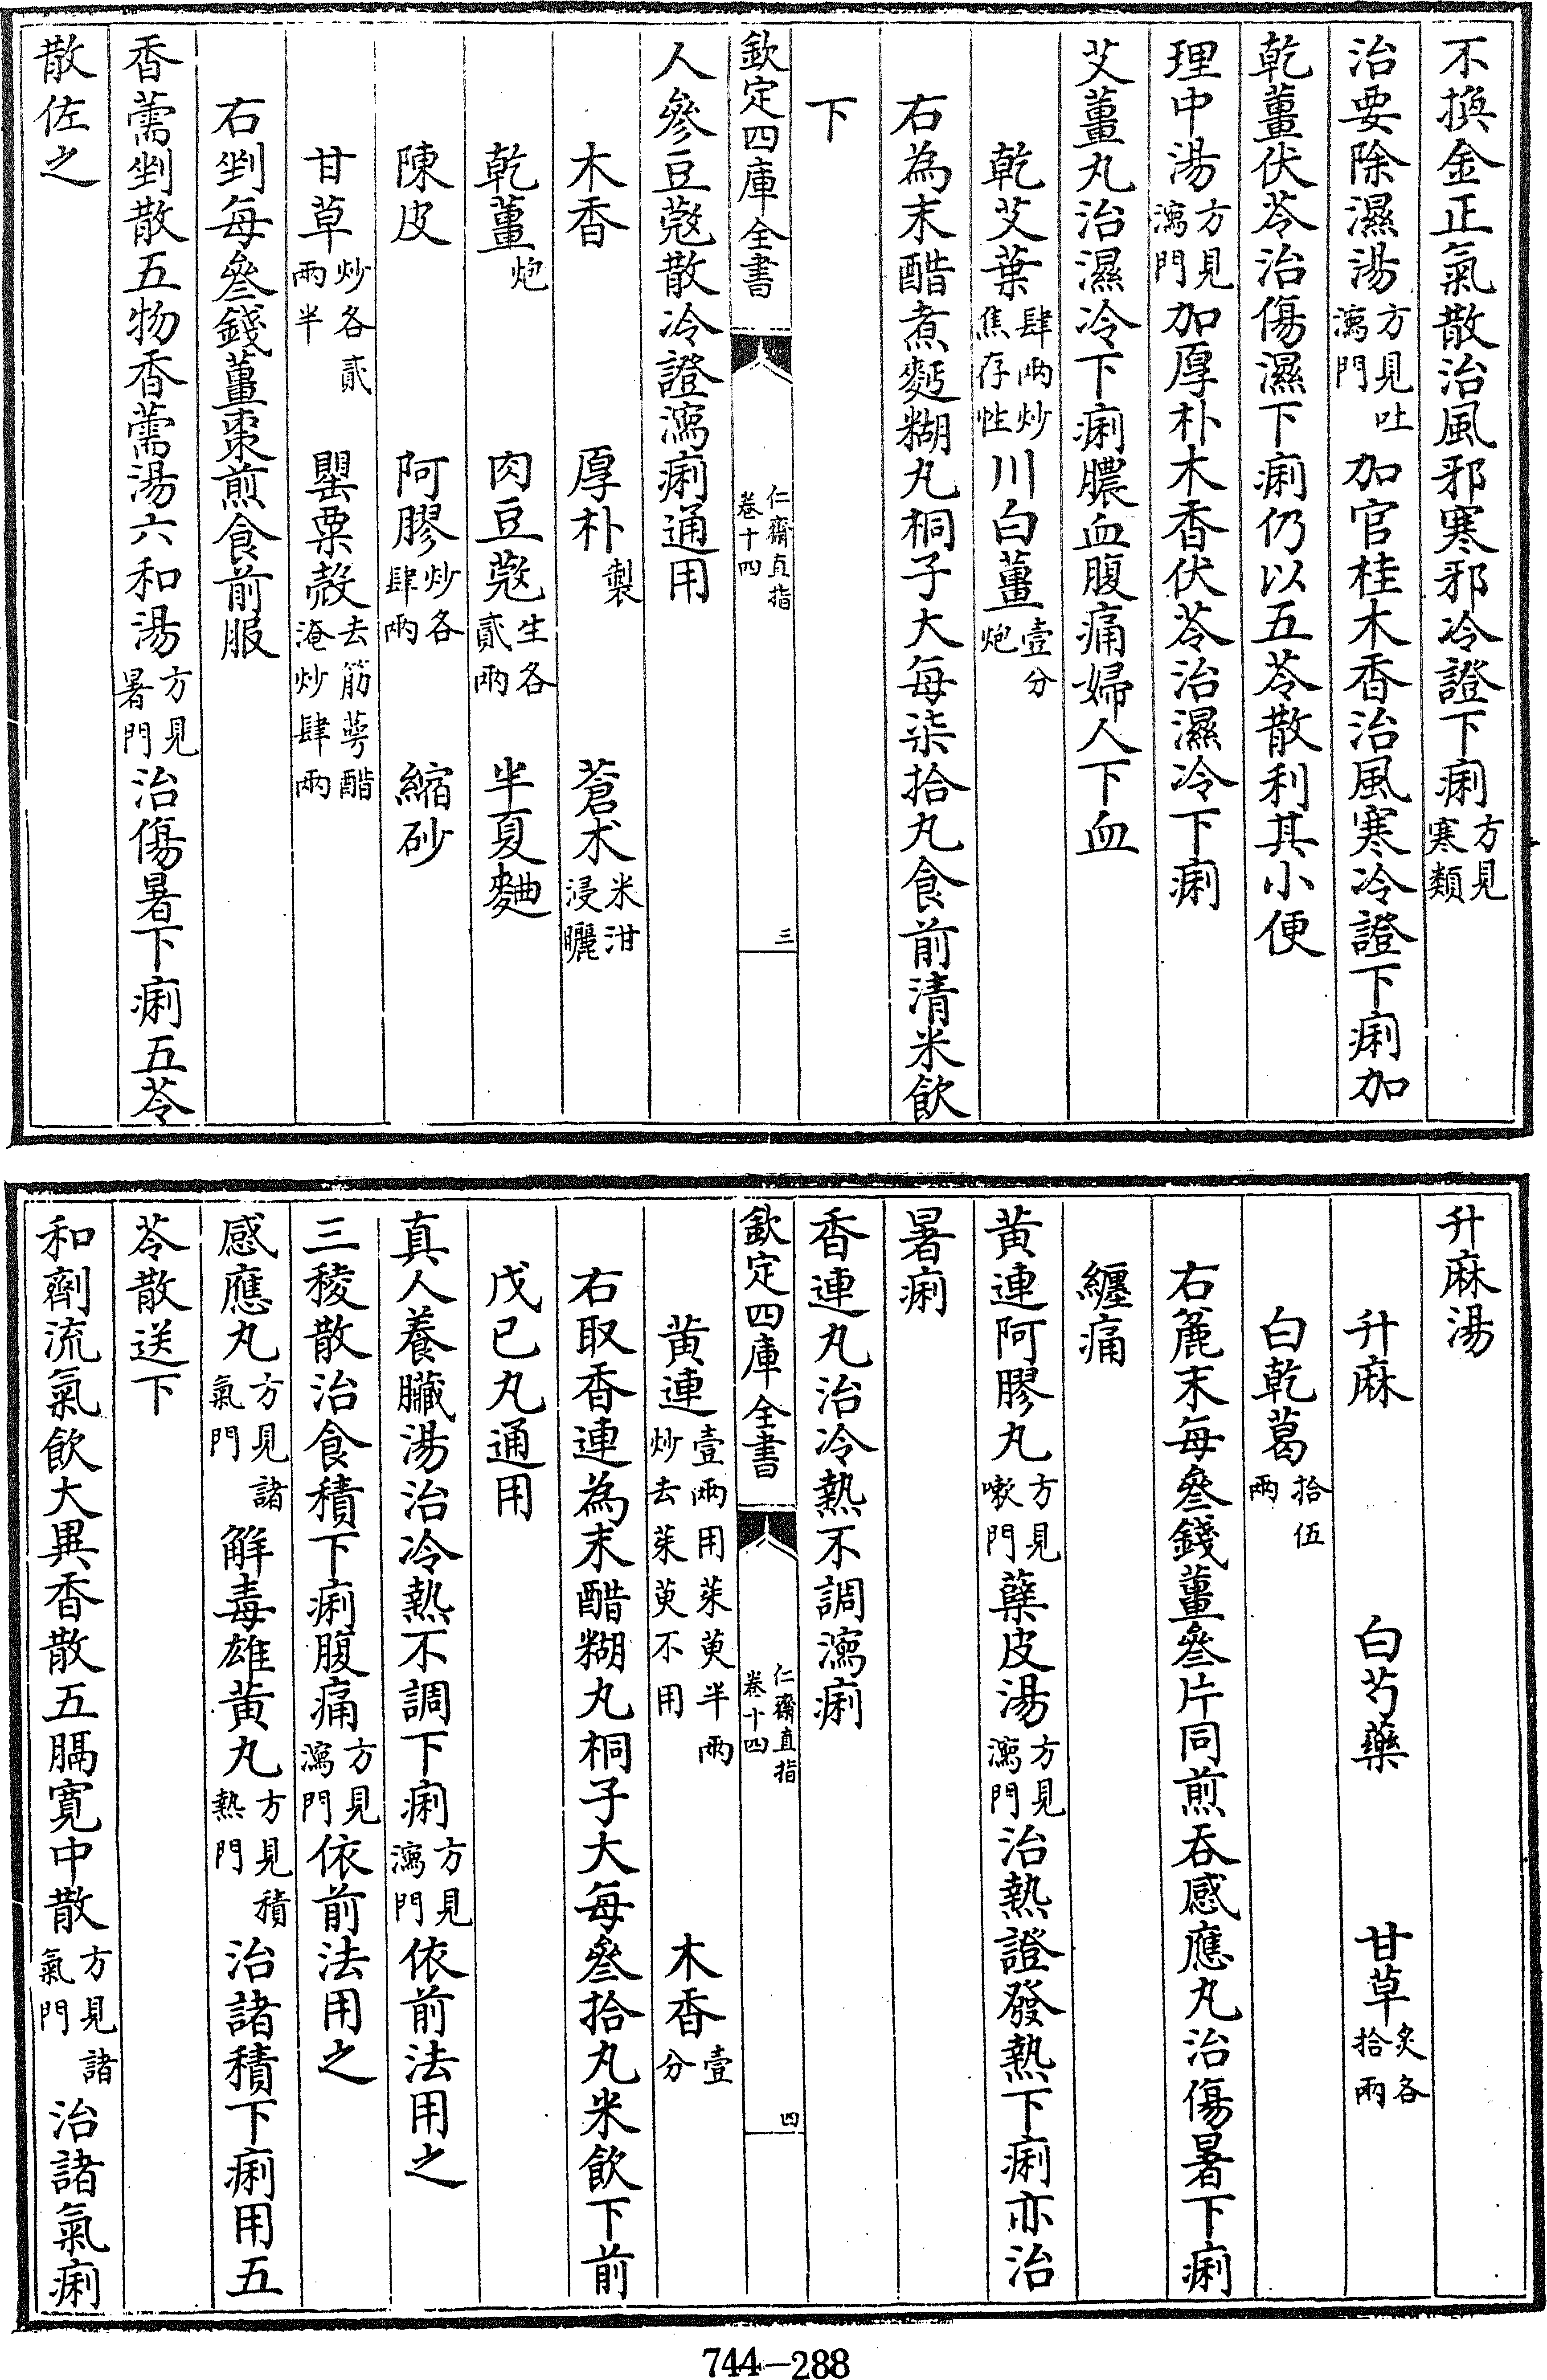 不換金正氣散治風邪寒邪冷證下痢方見寒類
治要除濕湯方見吐瀉門加官桂木香治風寒冷證下痢加
乾薑茯苓治傷濕下痢仍以五苓散利其小便
理中湯方見瀉門加厚朴木香茯苓治濕冷下痢
艾薑丸治濕冷下痢膿血腹痛婦人下血
乾艾葉肆兩炒焦存性川白薑壹分炮
右為末醋煮麪糊丸桐子大每柒拾丸食前清米飲
下
欽定四庫全書 仁齋直指卷十四 三
人參豆蔻散冷證瀉痢通用
木香 厚朴製 蒼朮米泔浸曬
乾薑炮 肉豆蔻生各貳兩 半夏麯
陳皮 阿膠炒各肆兩 縮砂
甘草炒各貳兩半 罌粟殼去筋萼醋淹炒肆兩
右剉每叄錢薑棗煎食前服
香薷剉散五物香薷湯六和湯方見暑門治傷暑下痢五苓
散佐之
升麻湯
升麻 白芍藥 甘草炙各拾兩
白乾葛拾伍兩
右麄末每叄錢薑叄片同煎吞感應丸治傷暑下痢
纏痛
黃連阿膠丸方見嗽門蘗皮湯方見瀉門治熱證發熱下痢亦治
暑痢
香連丸治冷熱不調瀉痢
欽定四庫全書 仁齋直指卷十四 四
黃連壹兩用茱萸半兩炒去茱萸不用 木香壹分
右取香連為末醋糊丸桐子大每叄拾丸米飲下前
戊己丸通用
真人養臟湯治冷熱不調下痢方見瀉門依前法用之
三稜散治食積下痢腹痛方見瀉門依前法用之
感應丸方見諸氣門解毒雄黃丸方見積熱門治諸積下痢用五
苓散送下
和劑流氣飲大異香散五膈寬中散方見諸氣門治諸氣痢
744—288